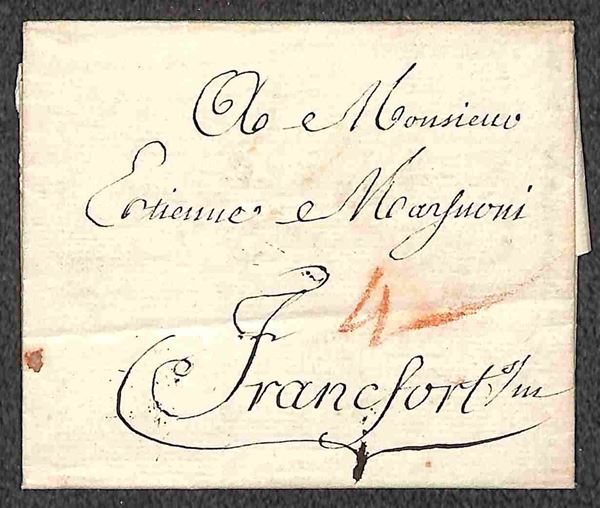 A Monsieur
Etienne Marsnoni
4
Francfort s/m